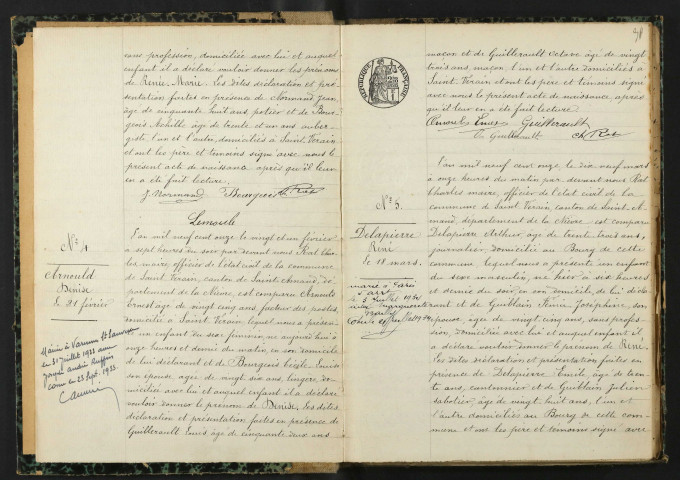 sans profession, domiciliée avec lui et auquel
enfant il a déclaré vouloir donner les prénoms
de Renée-Marie. Les dites déclaration et pré-
sentation faites en présence de Normand Jean
âgé de cinquante huit ans potier et de Bour-
geois Achille âgé de trente et un ans auber-
giste l'un et l'autre domiciliés à Saint Verain
et ont les père et témoins signé avec nous le
présent acte de naissance après qu'il leur
en a été fait lecture.
J. Normand Bourgeois Ch Rat
N° 4
Arnould
Denise
le 21 février
Marié à Varennes St Sauveur
le 31 juillet 1933 avec
Joseph André
25 Sept. 1933
L'an mil neuf cent onze le vingt et un février
à sept heures du soir par devant nous Rat Char
les maire officier de l'état civil de la commune
de Saint Verain, canton de Saint Amand, dé-
partement de la Nièvre, est comparu Arnould
Ernest âgé de vingt cinq ans facteur des postes
domicilié à Saint Verain, lequel nous a présen-
té un enfant du sexe féminin, né aujourd'hui à
onze heures et demie du matin, en son domicile
de lui déclarant et de Bourgeois Cécile
son épouse, âgée de vingt six ans, lingère, do-
miciliée avec lui et auquel enfant il a déclaré
vouloir donner le prénom de Denise. Les dites
déclaration et présentation faites en présence de
Guillerault Emés âgé de cinquante deux ans
maçon et de Guillerault Octave âgé de vingt
trois ans, maçon l'un et l'autre domiciliés à
Saint Verain et ont les père et témoins signé
avec nous le présent acte de naissance après
qu'il leur en a été fait lecture.
Guillerault
Guillerault Ch Rat
RÉPUBLIQUE FRANÇAISE
N° 5.
Delapierre
René
le 18 mars.
Marié à Paris
L'an mil neuf cent onze le dix neuf mars
à onze heures du matin par devant nous Rat
Charles maire, officier de l'état civil de la
commune de Saint Verain, canton de Saint A-
mand, département de la Nièvre, est comparu
Delapierre Arthur, âgé de trente trois ans,
journalier, domicilié au Bourg de cette
commune lequel nous a présenté un enfant
du sexe masculin, né hier à six heures
et demie du soir, en son domicile, de lui décla-
rant et de Guiblain Joséphine, son
épouse, âgée de vingt cinq ans, sans profes-
sion, domiciliée avec lui et auquel enfant il
a déclaré vouloir donner le prénom de René.
Les dites déclaration et présentation faites en
présence de Delapierre Emile, âgé de tren-
te ans, cantonnier et de Guiblain Julien
sabotier, âgé de vingt huit ans, l'un et
l'autre domiciliés au Bourg de cette com-
mune et ont les père et témoins signé avec